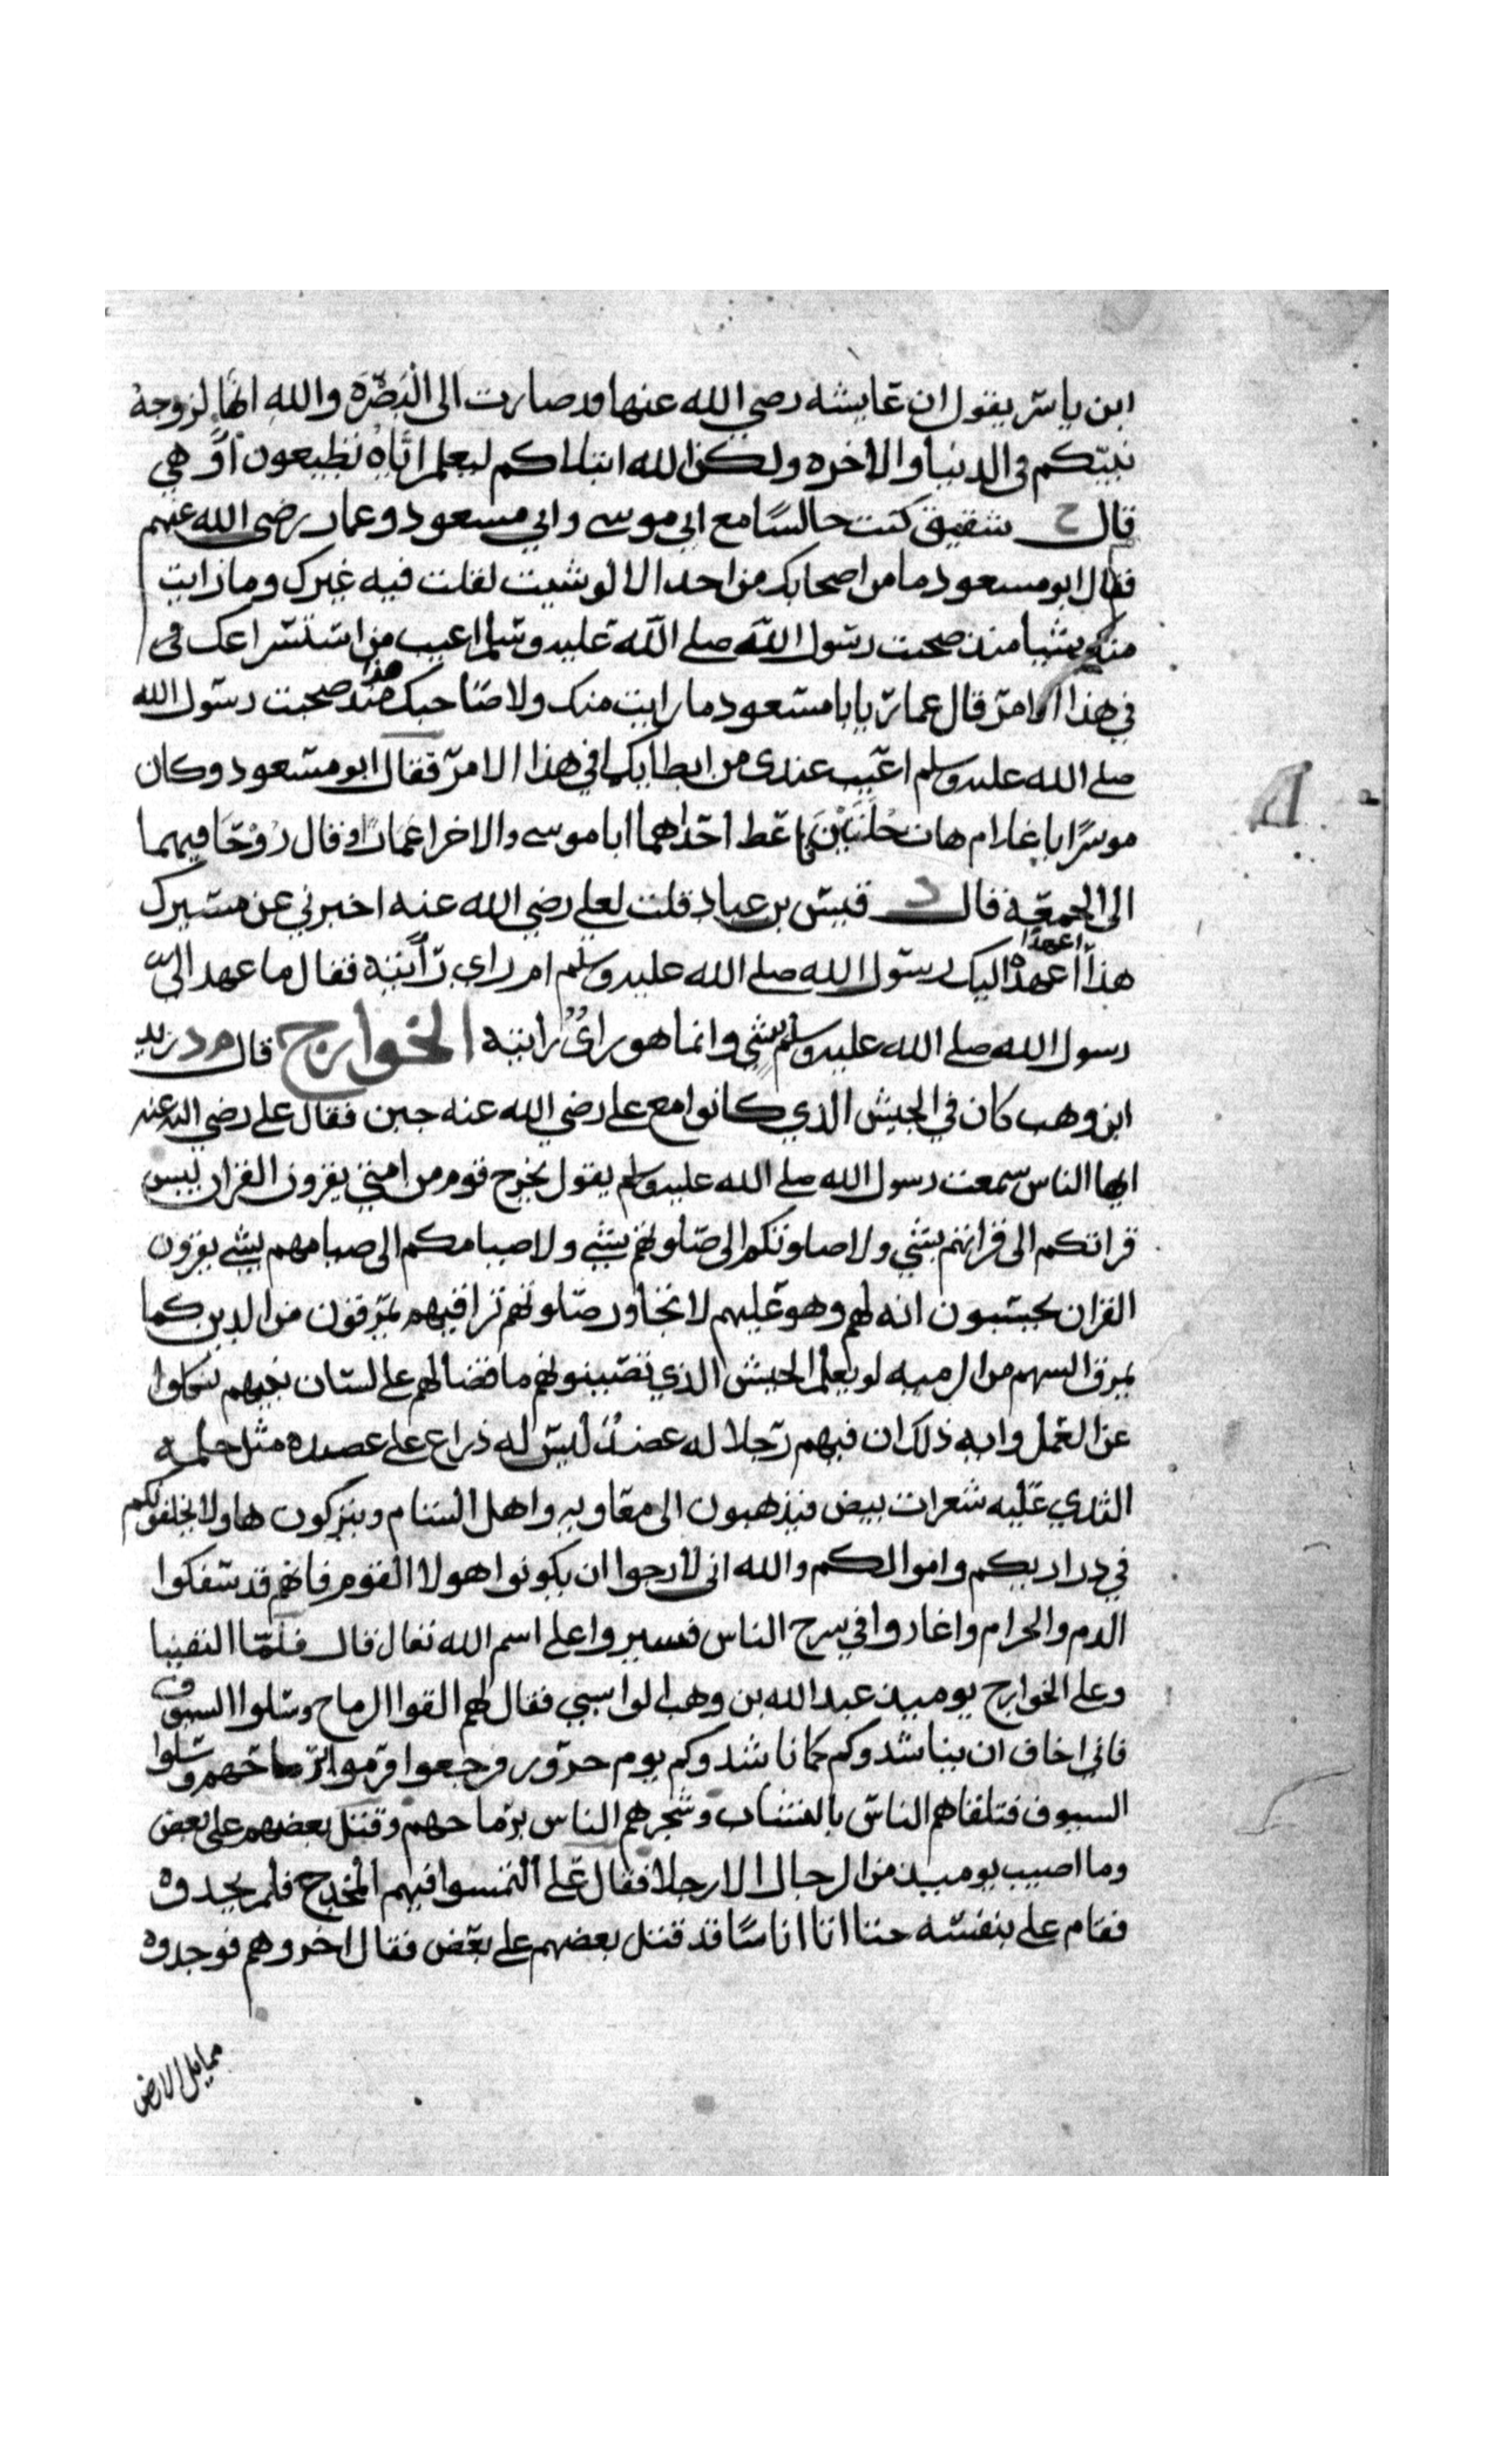 ابن ياسر يقول ان عايشه رضي الله عنها قد صارت الى البصره والله انها لزوجة
نبيكم في الدنيا والاخره ولكن الله ابتلاكم ليعلم اياه تطيعون او هي
قال خ شقيق كنت جالسا مع ابي موسى وابي مسعود وعمار رضي الله عنهم
فقال ابو مسعود ما من اصحابك من احد الا لو شيت لقلت فيه غيرك وما رايت
منك شيا منذ صحبت رسول الله صلى الله عليه وسلم اعيب من استسراعك في
في هذا الامر قال عمار يا با مسعود ما رايت منك ولا من صاحبك هذا منذ صحبت رسول الله
صلى الله عليه وسلم اعيب عندي من ابطايكما في هذا الامر فقال ابو مسعود وكان
موسرا يا غلام هات حلتين فاعط احداهما ابا موسى والاخرا عمارا وقال روحا فيهما
الى الجمعة قال د قيس بن عباد قلت لعلي رضي الله عنه اخبرني عن مسيرك
هذا اعهدا عهده اليك رسول الله صلى الله عليه وسلم ام راي رايته فقال ما عهد الي
رسول الله صلى الله عليه وسلم بشي وانما هو راي رايته الخوارج قال م د زيد
ابن وهب كان في الجيش الذي كانوا مع علي رضي الله عنه حين فقال علي رضي الله عنه
ايها الناس سمعت رسول الله صلى الله عليه وسلم يقول يخرج قوم من امتي يقرون القران ليس
قراتكم الى قراتهم بشي ولا صلوتكم الى صلوتهم بشي ولا صيامكم الى صيامهم بشي يقرون
القران يحسبون انه لهم وهو عليهم لا تجاوز صلوتهم تراقيهم يمرقون من الدين كما
يمرق السهم من الرميه لو يعلم الجيش الذي تصيبونهم ما قضا لهم على لسان نبيهم نكلوا
عن العمل وايه ذلك ان فيهم رجلا له عضد ليس له ذراع على عضده مثل حلمة
الثدي عليه شعرات بيض فتذهبون الى معاويه واهل الشام وتتركون هاولا يخلفونكم
في دراريكم واموالكم والله اني لارجوا ان يكونوا هولا القوم فانهم قد سفكوا
الدم والحرام واغاروا في سرح الناس فسيروا على اسم الله تعال قال فلما التقينا
وعلى الخوارج يوميذ عبد الله بن وهب الواسبي فقال لهم القوا الرماح وسلوا السيوف
فاني اخاف ان يناشدوكم كما ناشدوكم يوم حرور فرجعوا فرموا برماحهم وسلوا
السيوف فتلقاهم الناس بالنشاب وشجرهم الناس برماحهم وقتل بعضهم على بعض
وما اصيب يوميذ من الرجال الا رجلا فقال علي التمسوا فيهم المخدج فلم يجدوه
فقام علي بنفسه حتا اتا اناسا قد قتل بعضهم على بعض فقال اخروهم فوجدوه
مما يلي الارض